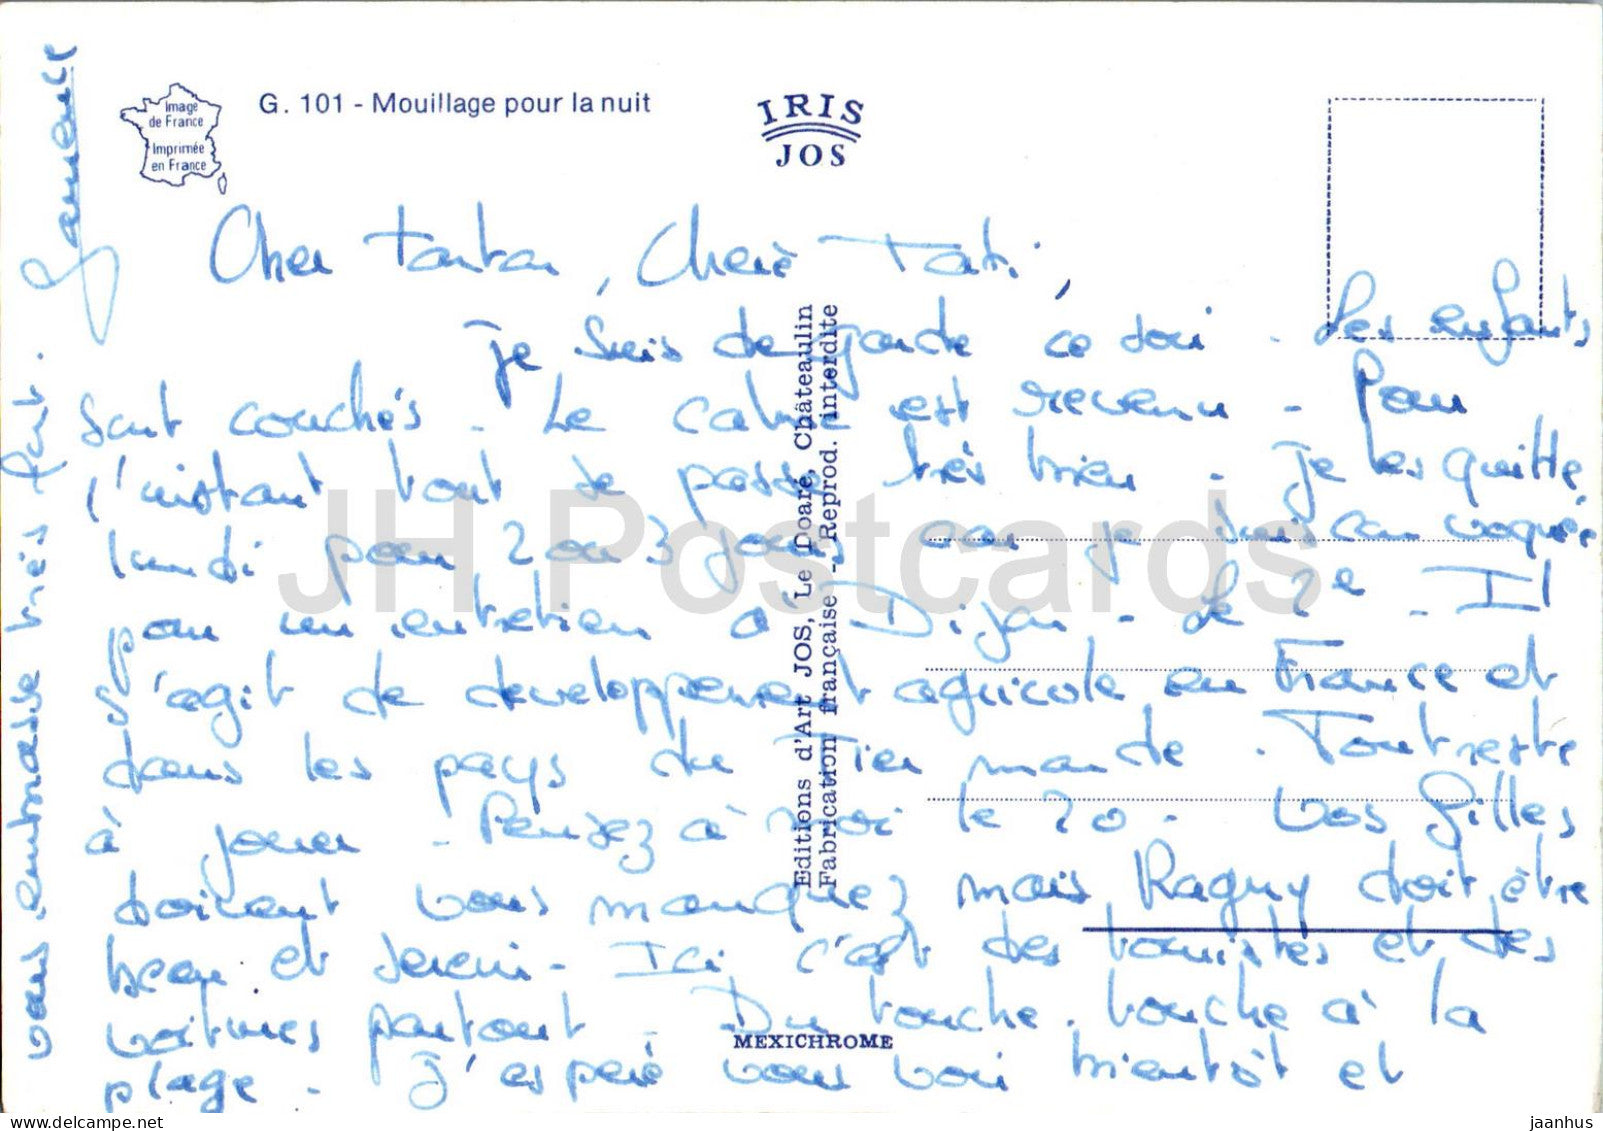 Image
de France
Imprimée
en France
G. 101 - Mouillage pour la nuit
IRIS
JOS
Cher Tonton, Chère Tati,
Je suis de garde ce soir - Les enfants
sont couchés - Le calme est revenu - Pour
l'instant tout se passe très bien - Je les quitte
lundi pour 2 ou 3 jours car je suis convoquée
pour un entretien à Dijon - le 2e - Il
s'agit de développement agricole en France et
dans les pays du Tier monde - Tout reste
à jouer - Pensez à moi le 20 - Vos filles
doivent vous manquez mais Raguy doit être
beau et serein - Ici, c'est des touristes et des
voitures partout - Du touche touche à la
plage - J'espère vous voir bientôt et
vous embrasse très fort.
Editions d'Art JOS, Le Doaré, Châteaulin
Fabrication française - Reprod. interdite
MEXICHROME
JH Postcards
www.delcampe.net
jaanhus